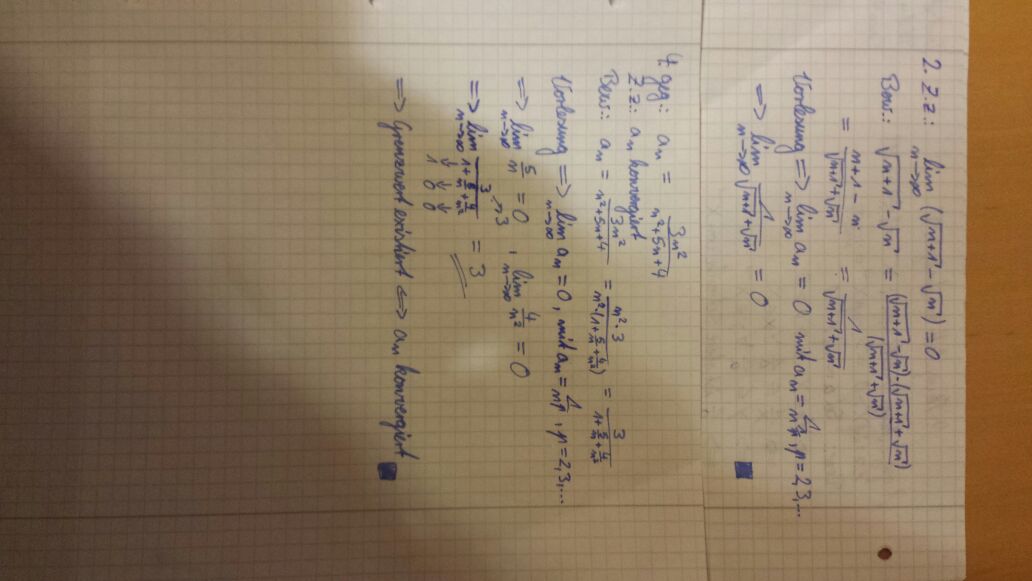 2. z.z.: lim n→∞ (√(n+1) - √n) = 0
Bew.: √(n+1) - √n = ((√(n+1) - √n)·(√(n+1) + √n)) / (√(n+1) + √n)
= (n+1-n) / (√(n+1) + √n) = 1 / (√(n+1) + √n)
Vorlesung ⇒ lim n→∞ an = 0 mit an = 1/, p = 2,3,...
⇒ lim n→∞ 1 / (√(n+1) + √n) = 0
4. geg.: an = 3n² / (n²+5n+4)
z.z.: an konvergiert
Bew.: an = 3n² / (n²+5n+4) = n²·3 / (n²·(1 + 5/n + 4/n²)) = 3 / (1 + 5/n + 4/n²)
Vorlesung ⇒ lim n→∞ an = 0, mit an = 1/nᵖ, p = 2,3,...
⇒ lim n→∞ 5/n = 0, lim n→∞ 4/n² = 0
⇒ lim n→∞ 3 / (1 + 5/n + 4/n²) = 3
→ 3
↓ ↓ ↓
1 0 0
⇒ Grenzwert existiert ⇔ an konvergiert